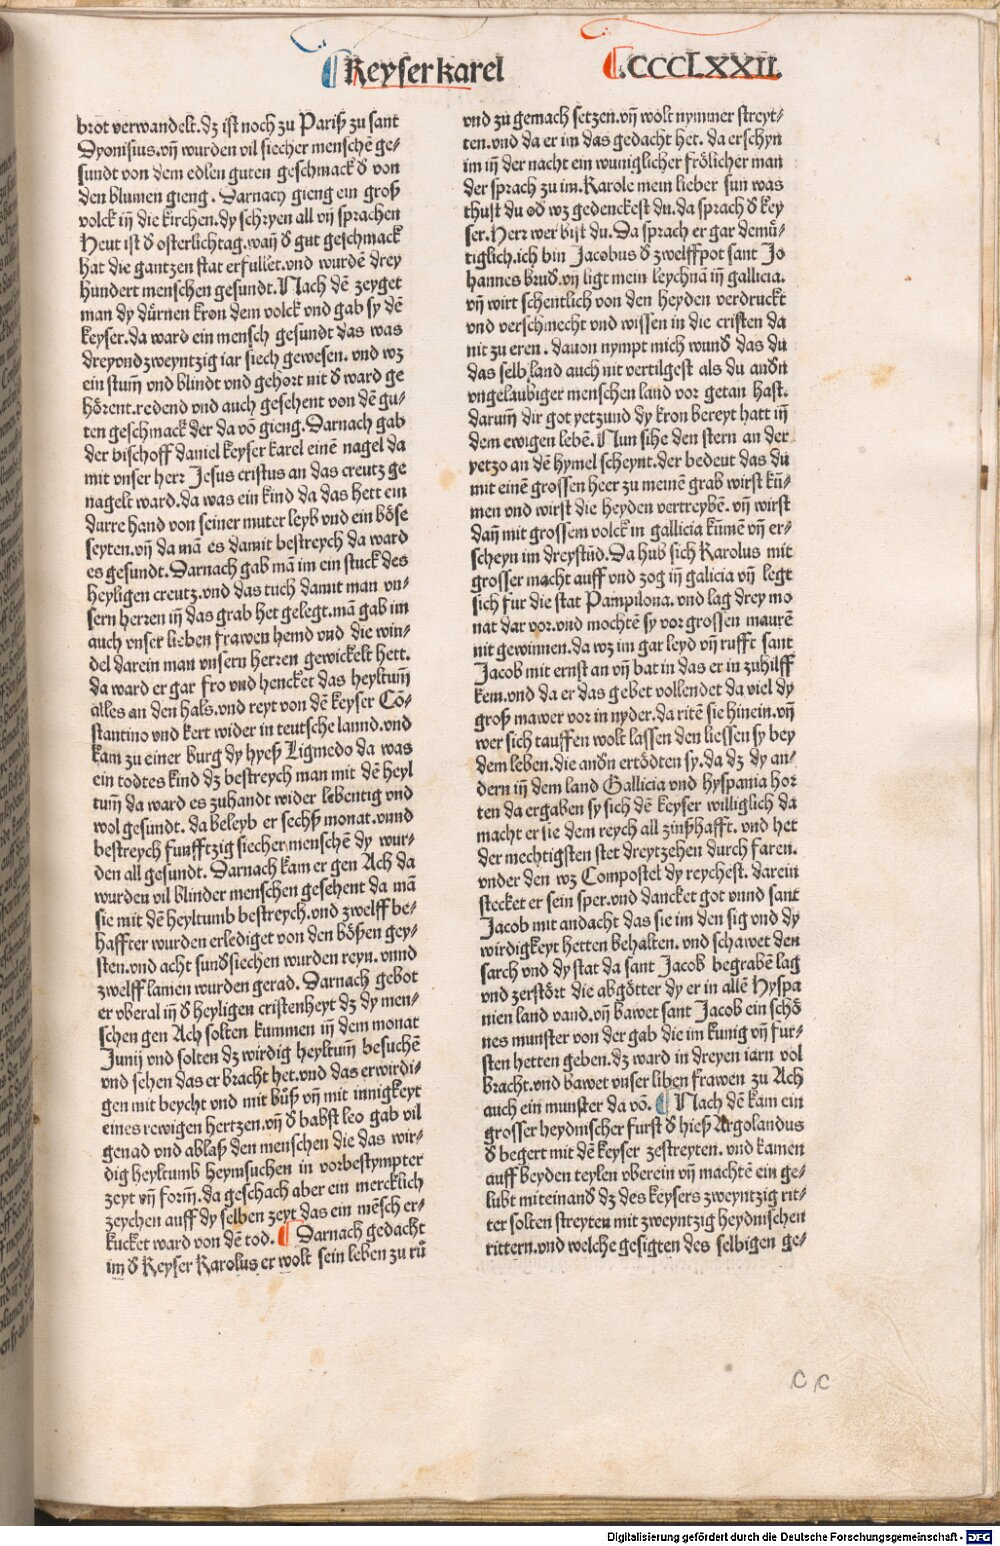 Keyser karel
.CCCCLXXII.
brot verwandelt.dz ist noch zu Pariß zu sant
Dyonisius.vñ wurden vil siecher menschē ge⸗
sundt von dem edlen guten geschmack đ von
den blumen gieng. Darnach gieng ein groß
volck iñ die kirchen.dy schryen all vñ sprachen
Heut ist đ osterlich tag.wañ đ gut geschmack
hat die gantzen stat erfullet.vnd wurdē drey
hundert menschen gesundt. Nach dē zeyget
man dy dürnen kron dem volck vnd gab sy dē
keyser.da ward ein mensch gesundt das was
dreyvndzweyntzig iar siech gewesen. vnd wz
ein stum̄ vnd blindt vnd gehort nit đ ward ge
hörent.redend vnd auch gesehent von dē gu⸗
ten geschmack der da vō gieng. Darnach gab
der bischoff daniel keyser karel einē nagel da
mit vnser herr Jesus cristus an das creutz ge
nagelt ward.da was ein kind da das hett ein
durre hand von seiner muter leyb vnd ein böse
seyten.vñ da mā es damit bestreych da ward
es gesundt. Darnach gab mā im ein stuck des
heyligen creutz.vnd das tuch damit man vn⸗
sern herren iñ das grab het gelegt.mā gab im
auch vnser lieben frawen hemd vnd die win⸗
del darein man vnsern herren gewickelt hett.
da ward er gar fro vnd hencket das heyltum̄
alles an den hals.vnd reyt von dē keyser Cō⸗
stantino vnd kert wider in teutsche lannd.vnd
kam zu einer burg dy hyeß Ligmedo da was
ein todtes kind dz bestreych man mit dē heyl
tum̄ da ward es zuhandt wider lebentig vnd
wol gesundt. da beleyb er sechß monat.vnnd
bestreych funfftzig siecher menschē dy wur⸗
den all gesundt. Darnach kam er gen Ach da
wurden vil blinder menschen gesehent da mā
sie mit dē heyltumb bestreych.vnd zwelff be⸗
haffter wurden erlediget von den bößen gey⸗
sten.vnd acht sundsiechen wurden reyn. vnnd
zwelff lamen wurden gerad. Darnach gebot
er vberal iñ đ heyligen cristenheyt dz dy men⸗
schen gen Ach solten kummen iñ dem monat
Junij vnd solten dz wirdig heyltum̄ besuchē
vnd sehen das er bracht het.vnd das erwirdi⸗
gen mit beycht vnd mit büß vñ mit innigkeyt
eines rewigen hertzen.vñ đ babst leo gab vil
genad vnd ablaß den menschen die das wir⸗
dig heyltumb heymsuchen in vorbestympter
zeyt vñ form̄.da geschach aber ein mercklich
zeychen auff dy selben zeyt das ein mēsch er⸗
kucket ward von dē tod. Darnach gedacht
im đ Keyser Karolus er wolt sein leben zu rů
vnd zu gemach setzen.vñ wolt nymmer streyt⸗
ten.vnd da er im das gedacht het. da erschyn
im iñ der nacht ein wuniglicher frölicher man
der sprach zu im. Karole mein lieber sun was
thust du ođ wz gedenckest du.da sprach đ key
ser. Herr wer bist du. Da sprach er gar demü⸗
tiglich.ich bin Jacobus đ zwelffpot sant Jo
hannes bruđ.vñ ligt mein leychnā iñ gallicia.
vñ wirt schentlich von den heyden verdruckt
vnd verschmecht vnd wissen in die cristen da
nit zu eren. dauon nympt mich wunđ das du
das selb land auch nit vertilgest als du anđn
vngelaubiger menschen land vor getan hast.
darum̄ dir got yetzund dy kron bereyt hatt iñ
dem ewigen lebē. Nun sihe den stern an der
yetzo an dē hymel scheynt.der bedeut das du
mit einē grossen heer zu meinē grab wirst kū⸗
men vnd wirst die heyden vertreybē. vñ wirst
dañ mit grossem volck in gallicia kūmē vñ er⸗
scheyn im dreystūd. Da hub sich Karolus mit
grosser macht auff vnd zog iñ galicia vñ legt
sich fur die stat Pampilona. vnd lag drey mo
nat dar vor.vnd mochtē sy vor grossen maurē
nit gewinnen.da wz im gar leyd vñ rufft sant
Jacob mit ernst an vñ bat in das er in zu hilff
kem.vnd da er das gebet vollendet da viel dy
groß mawer vor in nyder.da ritē sie hinein.vñ
wer sich tauffen wolt lassen den liessen sy bey
dem leben.die anđn ertödten sy.da dz dy an⸗
dern iñ dem land Gallicia vnd hyspania hor
ten da ergaben sy sich dē keyser williglich da
macht er sie dem reych all zinßhafft. vnd het
der mechtigsten stet dreytzehen durch faren.
vnder den wz Compostel dy reychest. darein
stecket er sein sper.vnd dancket got vnnd sant
Jacob mit andacht das sie im den sig vnd dy
wirdigkeyt hetten behalten. vnd schawet den
sarch vnd dy stat da sant Jacob begrabē lag
vnd zerstört die abgötter dy er in allē Hyspa
nien land vand.vñ bawet sant Jacob ein schö
nes munster von der gab die im kunig vñ fur⸗
sten hetten geben.dz ward in dreyen iarn vol
bracht.vnd bawet vnser liben frawen zu Ach
auch ein munster da vō. Nach dē kam ein
grosser heydnischer furst đ hieß Argolandus
đ begert mit dē keyser zestreyten. vnd kamen
auff beyden teylen vberein vñ machtē ein ge⸗
lubt miteinanđ dz des keysers zweyntzig rit⸗
ter solten streyten mit zweyntzig heydnischen
rittern.vnd welche gesigten des selbigen ge⸗
c c
Digitalisierung gefördert durch die Deutsche Forschungsgemeinschaft - DFG